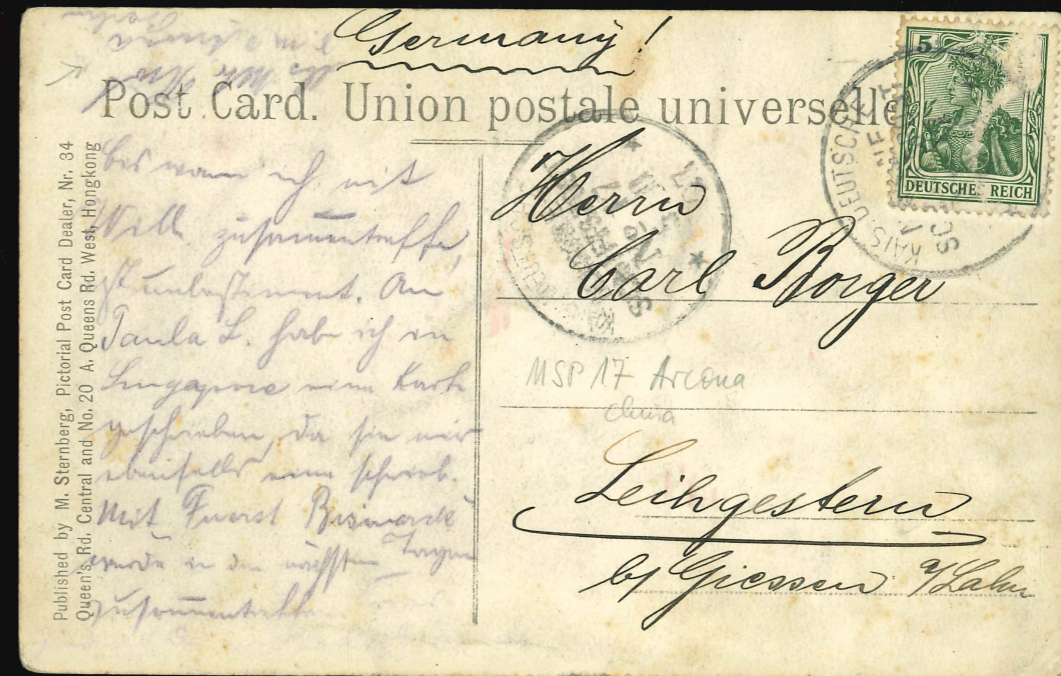 Germany!
Post Card. Union postale universelle
Published by M. Sternberg, Pictorial Post Card Dealer, Nr. 34
Queen's Rd. Central and No. 20 A. Queens Rd. West, Hongkong
5
DEUTSCHES REICH
Herrn
Carl Borger
MSP 17 Arcona
china
Leihgestern
b/ Giessen a/Lahn
bis wann ich mit
Willi zusammentreffe,
ist unbestimmt. An
Paula L. habe ich in
Singapore eine Karte
geschrieben, da sie mir
ebenfalls eine schrieb.
Mit Fuerst Bismarck
werde in den nächsten Tagen
zusammentreffen